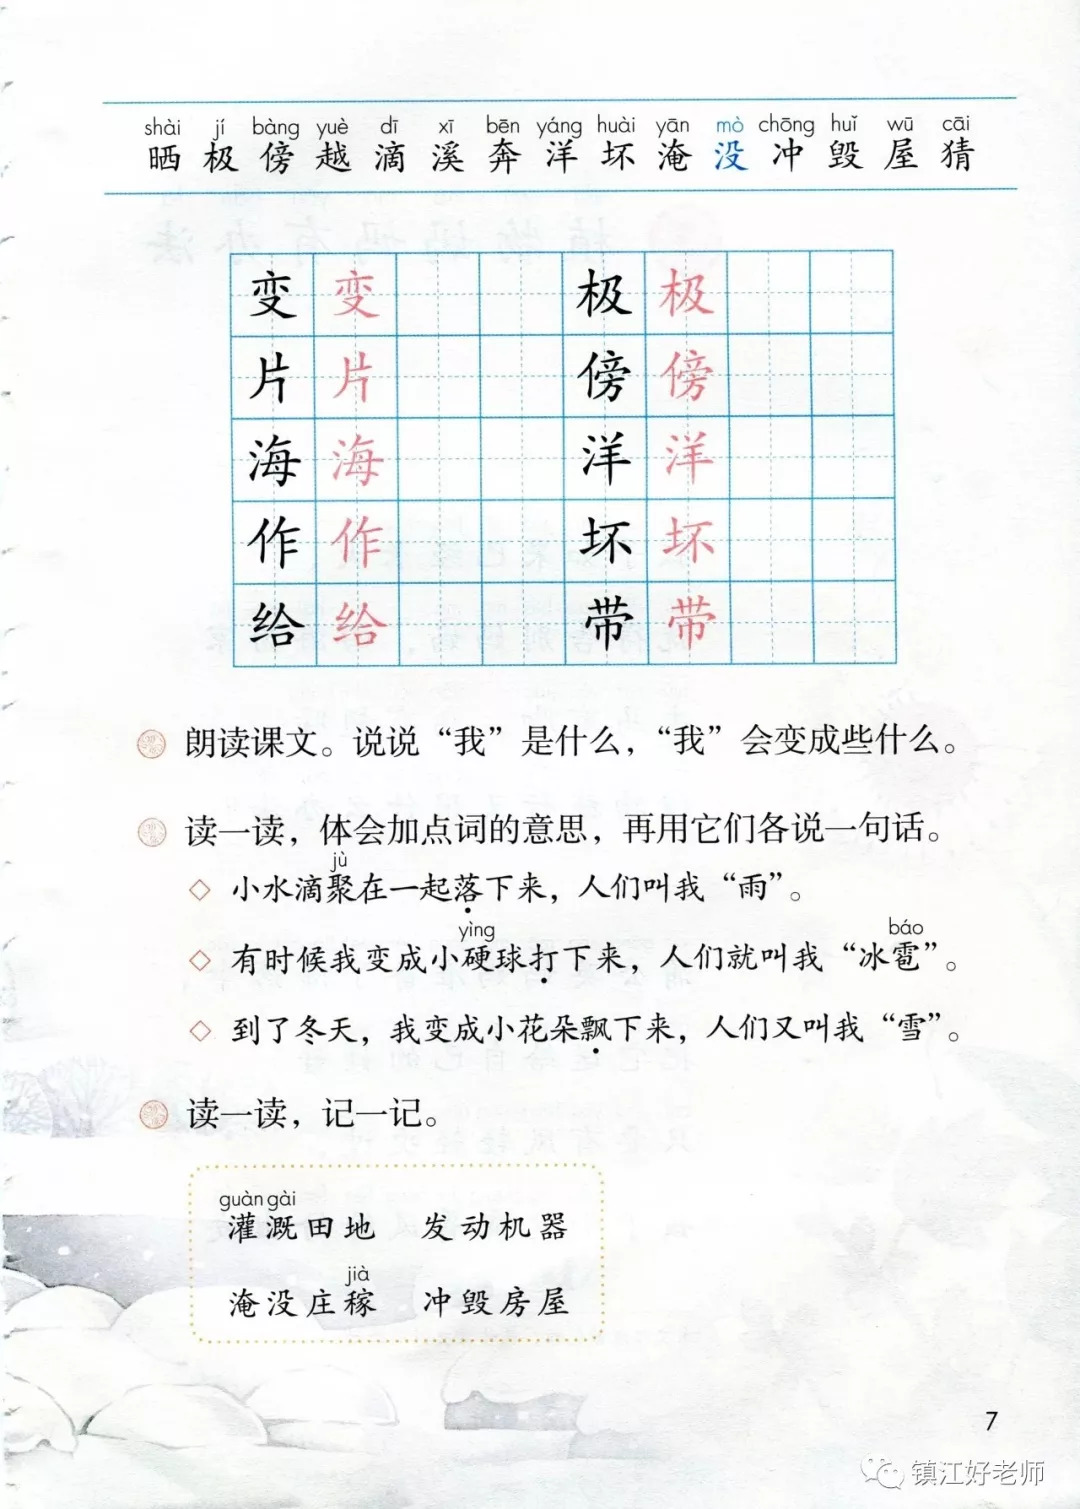 shài jí bàng yuè dī xī bēn yáng huài yān mò chōng huǐ wū cāi
晒 极 傍 越 滴 溪 奔 洋 坏 淹 没 冲 毁 屋 猜
变 变 极 极
片 片 傍 傍
海 海 洋 洋
作 作 坏 坏
给 给 带 带
朗读课文。说说“我”是什么，“我”会变成些什么。
读一读，体会加点词的意思，再用它们各说一句话。
jù
◇ 小水滴聚在一起落下来，人们叫我“雨”。
yìng báo
◇ 有时候我变成小硬球打下来，人们就叫我“冰雹”。
◇ 到了冬天，我变成小花朵飘下来，人们又叫我“雪”。
读一读，记一记。
guàn gài
灌溉田地 发动机器
jià
淹没庄稼 冲毁房屋
7
镇江好老师